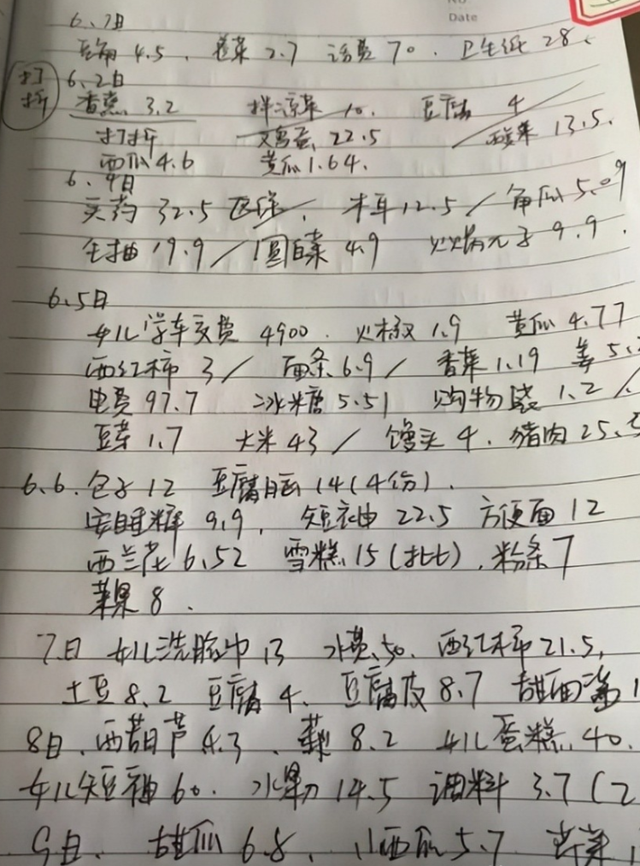 No
Date
6.1日
4.5、 菜 2.7 话费 70. 卫生纸 28、
打折
6.2日
香蕉 3.2 拌凉菜 10. 豆腐 4
打折 鸡蛋 22.5 酸菜 13.5.
西瓜 4.6 黄瓜 1.64.
6.4日
买药 32.5 医保 木耳 12.5 / 角瓜 5.09
生抽 19.9 / 圆白菜 4.9 火锅丸子 9.9.
6.5日
女儿学车交费 4900. 1.9 黄瓜 4.77
西红柿 3 / 面条 6.9 / 香菜 1.19 姜 5.
电费 97.7 冰糖 5.51 购物袋 1.2 /
豆芽 1.7 大米 43 / 馒头 4. 猪肉 25.5
6.6. 包子 12 豆腐脑 14(4份).
9.9, 短袖 22.5 方便面 12
西兰花 6.52 雪糕 15 (批), 粉条 7
苹果 8.
7日 女儿洗脸巾 13 水费 50. 西红柿 21.5,
土豆 8.2 豆腐 4. 豆腐皮 8.7 甜面酱 1
8日. 西葫芦 4.3 、 8.2 女儿蛋糕 40.
女儿短袖 60. 水果 14.5 调料 3.7 (2
9日、 甜瓜 6.8, 小西瓜 5.7